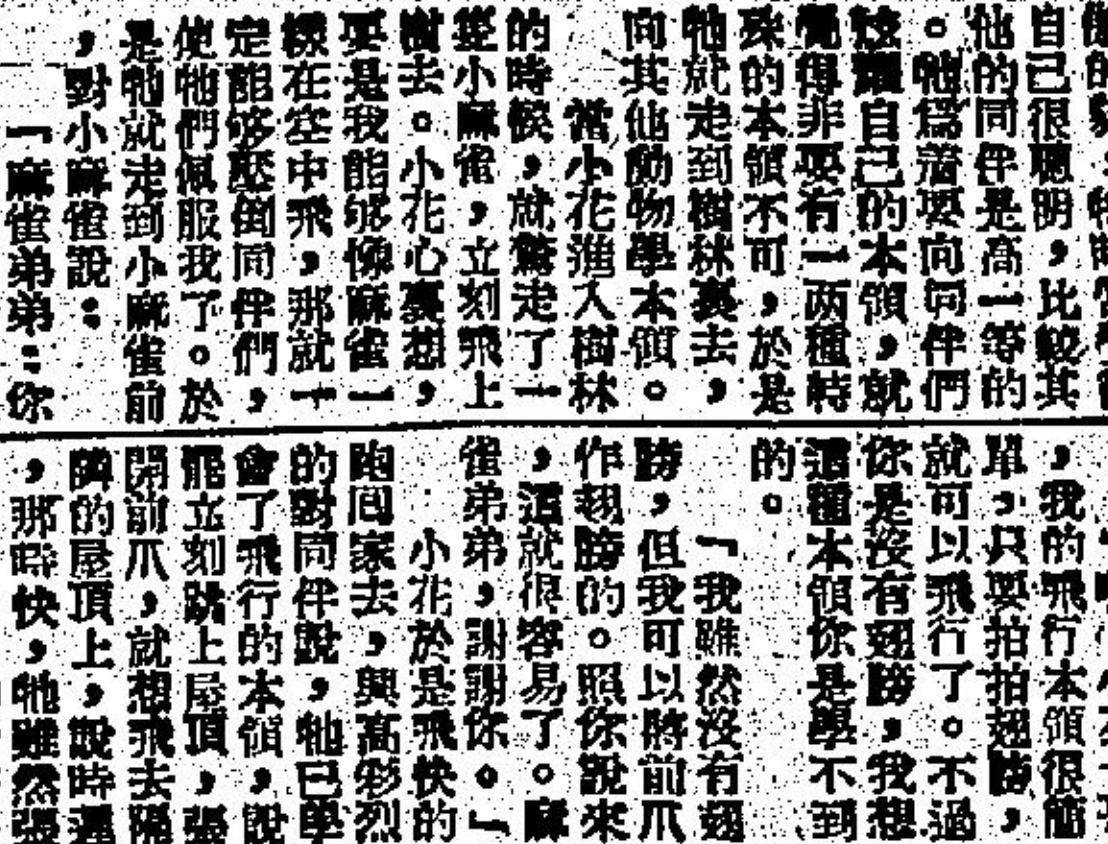 自己很聰明，比較其
他的同伴是高一等的
。牠爲着要向同伴們
誇耀自己的本領，就
覺得非要有一两種特
殊的本領不可，於是
牠就走到樹林裏去，
向其他動物學本領。
當小花進入樹林
的時候，就驚走了一
隻小麻雀，立刻飛上
樹去。小花心裏想，
要是我能够像麻雀一
樣在空中飛，那就一
定能够壓倒同伴們，
使牠們佩服我了。於
是牠就走到小麻雀前
，對小麻雀說：
「麻雀弟弟：你
，我的飛行本領很簡
單，只要拍拍翅膀，
就可以飛行了。不過
你是沒有翅膀，我想
這種本領你是學不到
的。
「我雖然沒有翅
膀，但我可以將前爪
作翅膀的。照你說來
，這就很容易了。麻
雀弟弟，謝謝你。」
小花於是飛快的
跑囘家去，興高彩烈
的對同伴說，牠已學
會了飛行的本領，說
罷立刻跳上屋頂，張
開前爪，就想飛去隔
隣的屋頂上，說時遲
，那時快，牠雖然張